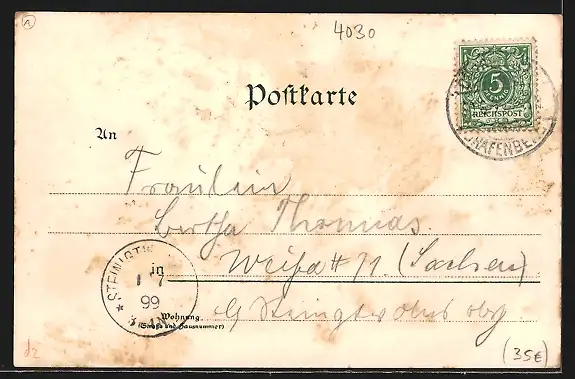 4030
5
REICHSPOST
Postkarte
An
Fräulein
Bertha Thomas.
in
Weifa # 71. (Sachsen)
STEINIGTW
1 7
99
Wohnung
(Straße und Hausnummer)
(35€)